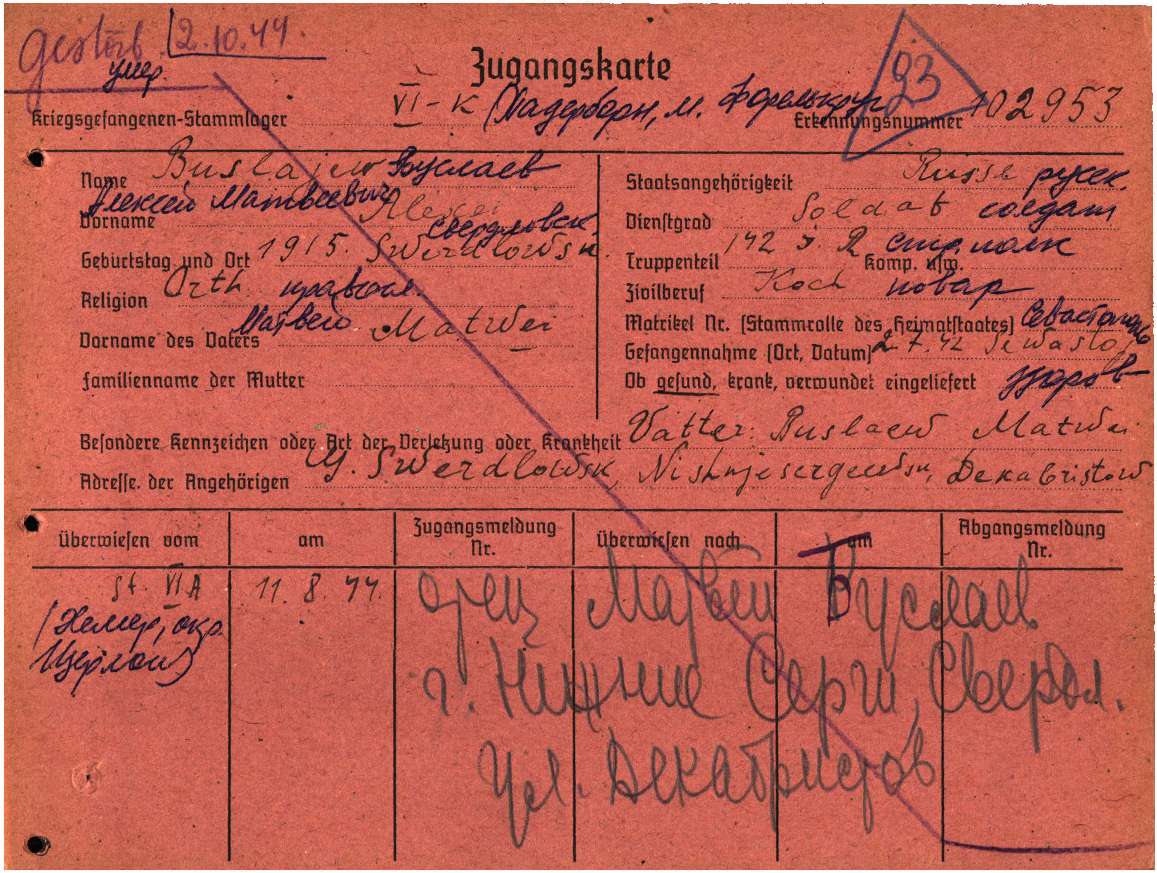 Gestorb. 2.10.44.
умер.
Zugangskarte
93
Kriegsgefangenen-Stammlager VI-K (Падерборн, м. Форелькруг Erkennungsnummer 102953
Name Buslajew Буслаев
Алексей Матвеевич
Vorname Alexei
Свердловск
Geburtstag und Ort 1915. Swerdlowsk.
Religion Orth. правосл.
Матвей
Vorname des Vaters Matwei
Familienname der Mutter
Staatsangehörigkeit Russe русск.
Dienstgrad Soldat солдат
Truppenteil 142 J. R стр. полк Komp. usw.
Zivilberuf Koch повар
Matrikel Nr. (Stammrolle des Heimatstaates) Севастополь
Gefangennahme (Ort, Datum) 2.7.42 Sewastop
Ob gesund, krank, verwundet eingeliefert здоров
Besondere Kennzeichen oder Art der Verletzung oder Krankheit Vatter: Buslaew Matwei
Adresse der Angehörigen G. Swerdlowsk, Nishnjesergewsk, Dekabristow
Überwiesen vom am Zugangsmeldung Nr. Überwiesen nach am Abgangsmeldung Nr.
St. VI A 11. 8. 44.
(Хемер, окр.
Изерлон)
отец Матвей Буслаев
г. Нижние Серги, Свердл.
ул. Декабристов